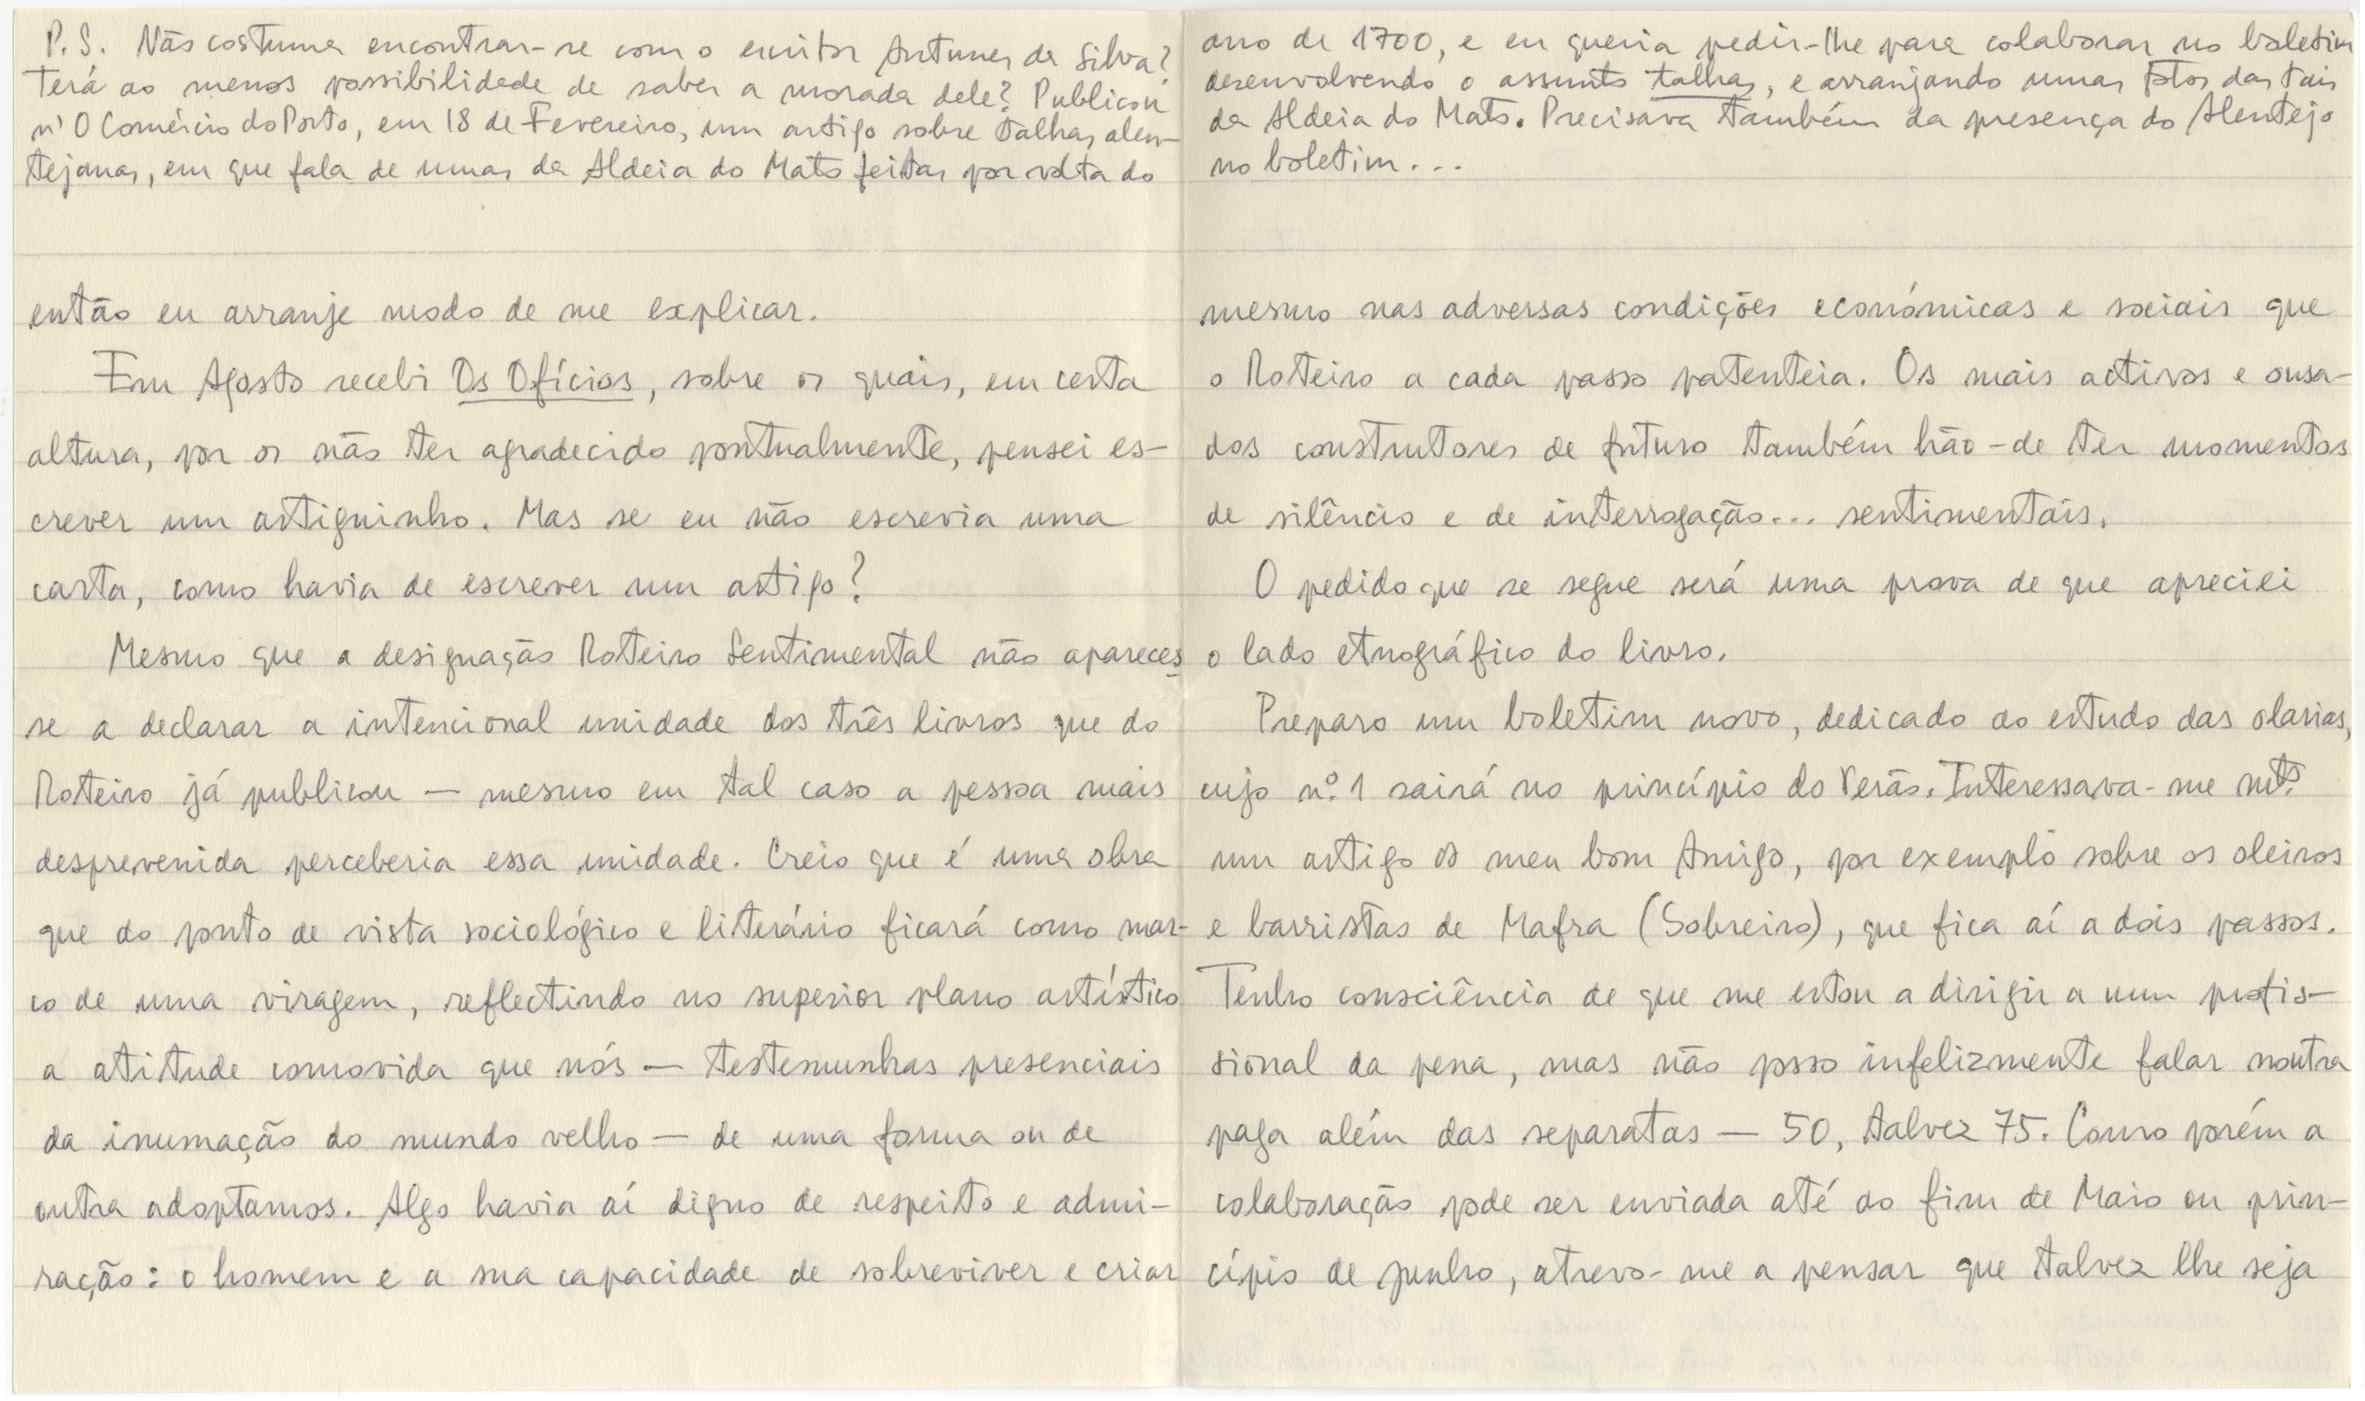 P.S. Não costuma encontrar-se com o escritor Antunes da Silva?
Terá ao menos possibilidade de saber a morada dele? Publicou
n'O Comércio do Porto, em 18 de Fevereiro, um artigo sobre talhas alen-
tejanas, em que fala de umas da Aldeia do Mato feitas por volta do
ano de 1700, e eu queria pedir-lhe para colaborar no boletim
desenvolvendo o assunto talhas, e arranjando umas fotos das tais
da Aldeia do Mato. Precisava também da presença do Alentejo
no boletim...
então eu arranje modo de me explicar.
Em Agosto recebi Os Ofícios, sobre os quais, em certa
altura, por os não ter agradecido pontualmente, pensei es-
crever um artiguinho. Mas se eu não escrevia uma
carta, como havia de escrever um artigo?
Mesmo que a designação Roteiro Sentimental não apareces
se a declarar a intencional unidade dos três livros que do
Roteiro já publicou — mesmo em tal caso a pessoa mais
desprevenida perceberia essa unidade. Creio que é uma obra
que do ponto de vista sociológico e literário ficará como mar-
co de uma viragem, reflectindo no superior plano artístico
a atitude comovida que nós — testemunhas presenciais
da inumação do mundo velho — de uma forma ou de
outra adoptamos. Algo havia aí digno de respeito e admi-
ração: o homem e a sua capacidade de sobreviver e criar
mesmo nas adversas condições económicas e sociais que
o Roteiro a cada passo patenteia. Os mais activos e ousa-
dos construtores de futuro também hão-de ter momentos
de silêncio e de interrogação... sentimentais.
O pedido que se segue será uma prova de que apreciei
o lado etnográfico do livro.
Preparo um boletim novo, dedicado ao estudo das olarias,
cujo nº. 1 sairá no princípio do Verão. Interessava-me mtº.
um artigo do meu bom Amigo, por exemplo sobre os oleiros
e barristas de Mafra (Sobreiro), que fica aí a dois passos.
Tenho consciência de que me estou a dirigir a um profis-
sional da pena, mas não posso infelizmente falar noutra
paga além das separatas — 50, talvez 75. Como porém a
colaboração pode ser enviada até ao fim de Maio ou prin-
cípio de Junho, atrevo-me a pensar que talvez lhe seja